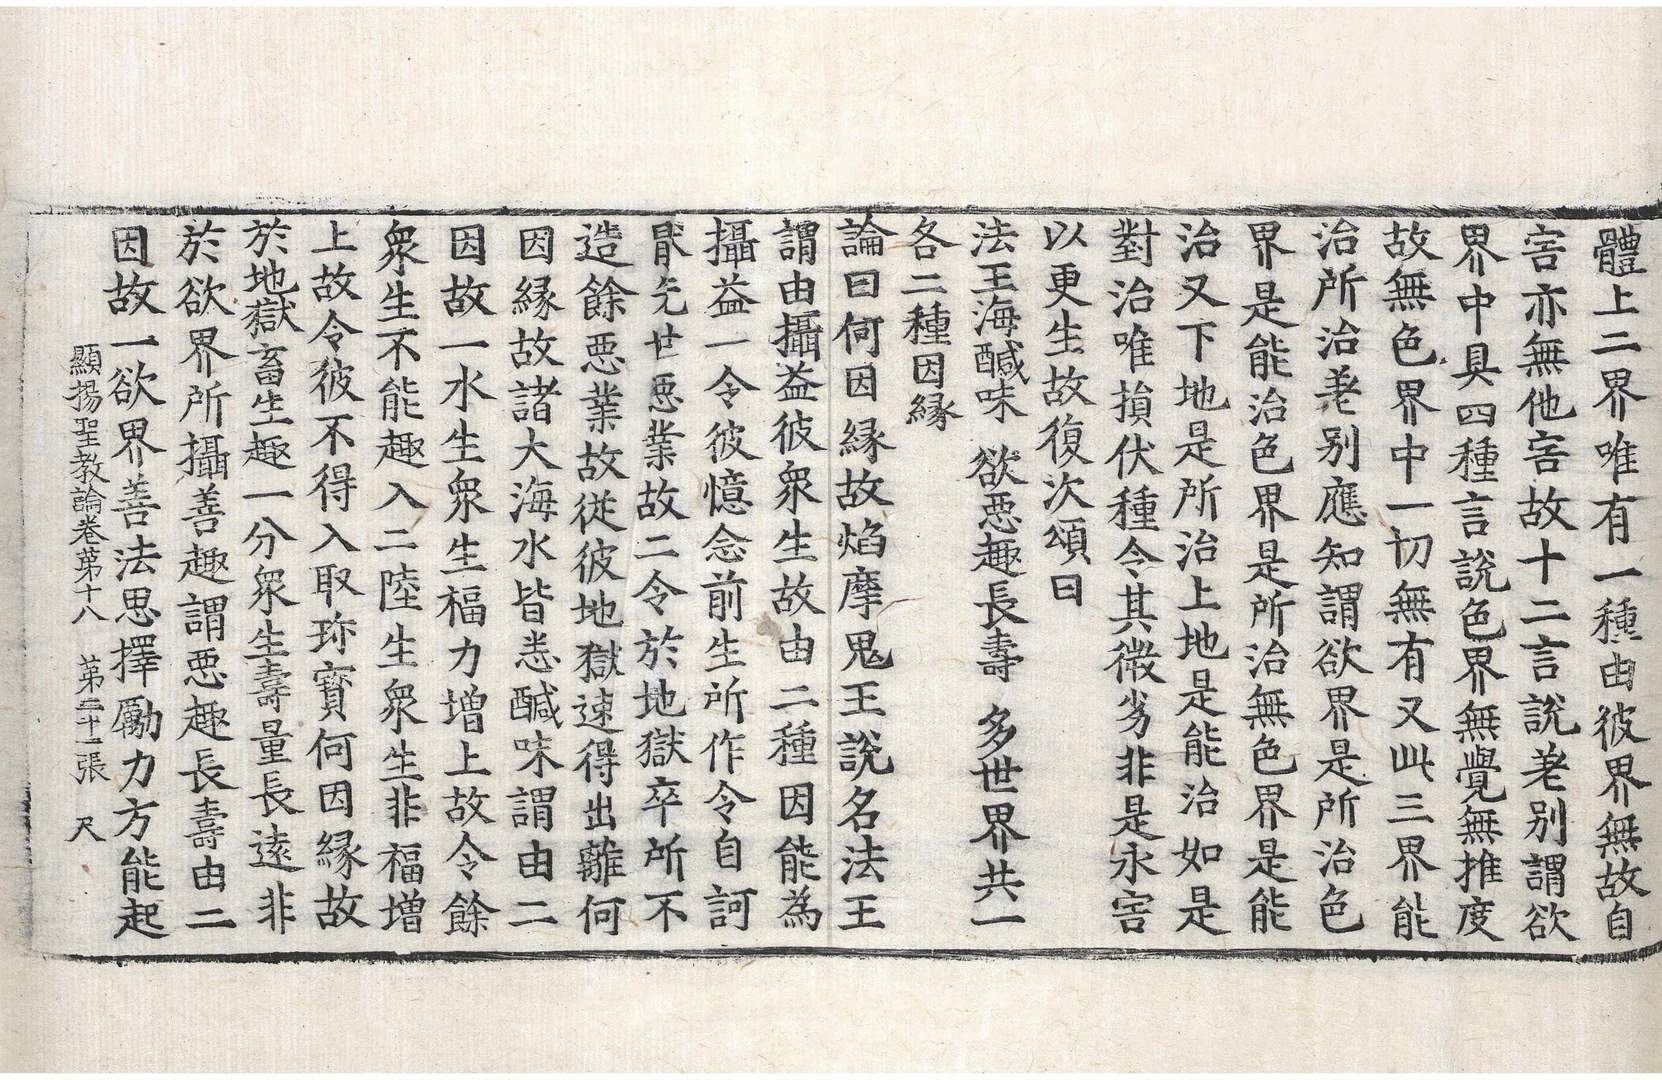 體上二界唯有一種由彼界無故自
害亦無他害故十二言說差别謂欲
界中具四種言說色界無覺無推度
故無色界中一切無有又此三界能
治所治差别應知謂欲界是所治色
界是能治色界是所治無色界是能
治又下地是所治上地是能治如是
對治唯損伏種令其微劣非是永害
以更生故復次頌曰
法王海醎味　欲惡趣長壽　多世界共一
各二種因緣
論曰何因緣故焰摩鬼王說名法王
謂由攝益彼衆生故由二種因能為
攝益一令彼憶念前生所作令自訶
猒先世惡業故二令於地獄卒所不
造餘惡業故從彼地獄速得出離何
因緣故諸大海水皆悉醎味謂由二
因故一水生衆生福力增上故令餘
衆生不能趣入二陸生衆生非福增
上故令彼不得入取珎寶何因緣故
於地獄畜生趣一分衆生壽量長遠非
於欲界所攝善趣謂惡趣長壽由二
因故一欲界善法思擇勵力方能起
顯揚聖教論卷第十八　第二十二張　尺